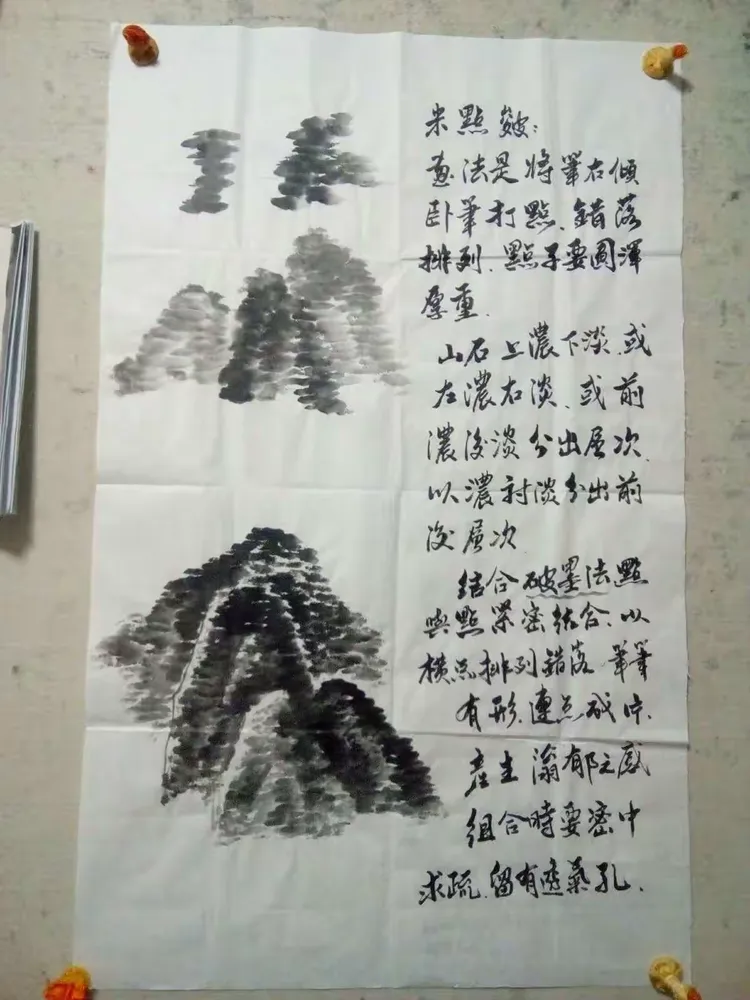 米點皴：
畫法是將筆右傾
卧筆打點、錯落
排列、點子要圓渾
厚重．
山石上濃下淡、或
左濃右淡、或前
濃後淡分出層次、
以濃襯淡分出前
後層次
結合破墨法點
與點緊密結合、以
横点排列錯落、筆筆
有形、連点成片、
產生滃郁之感
組合時要密中
求疏、留有透氣孔．